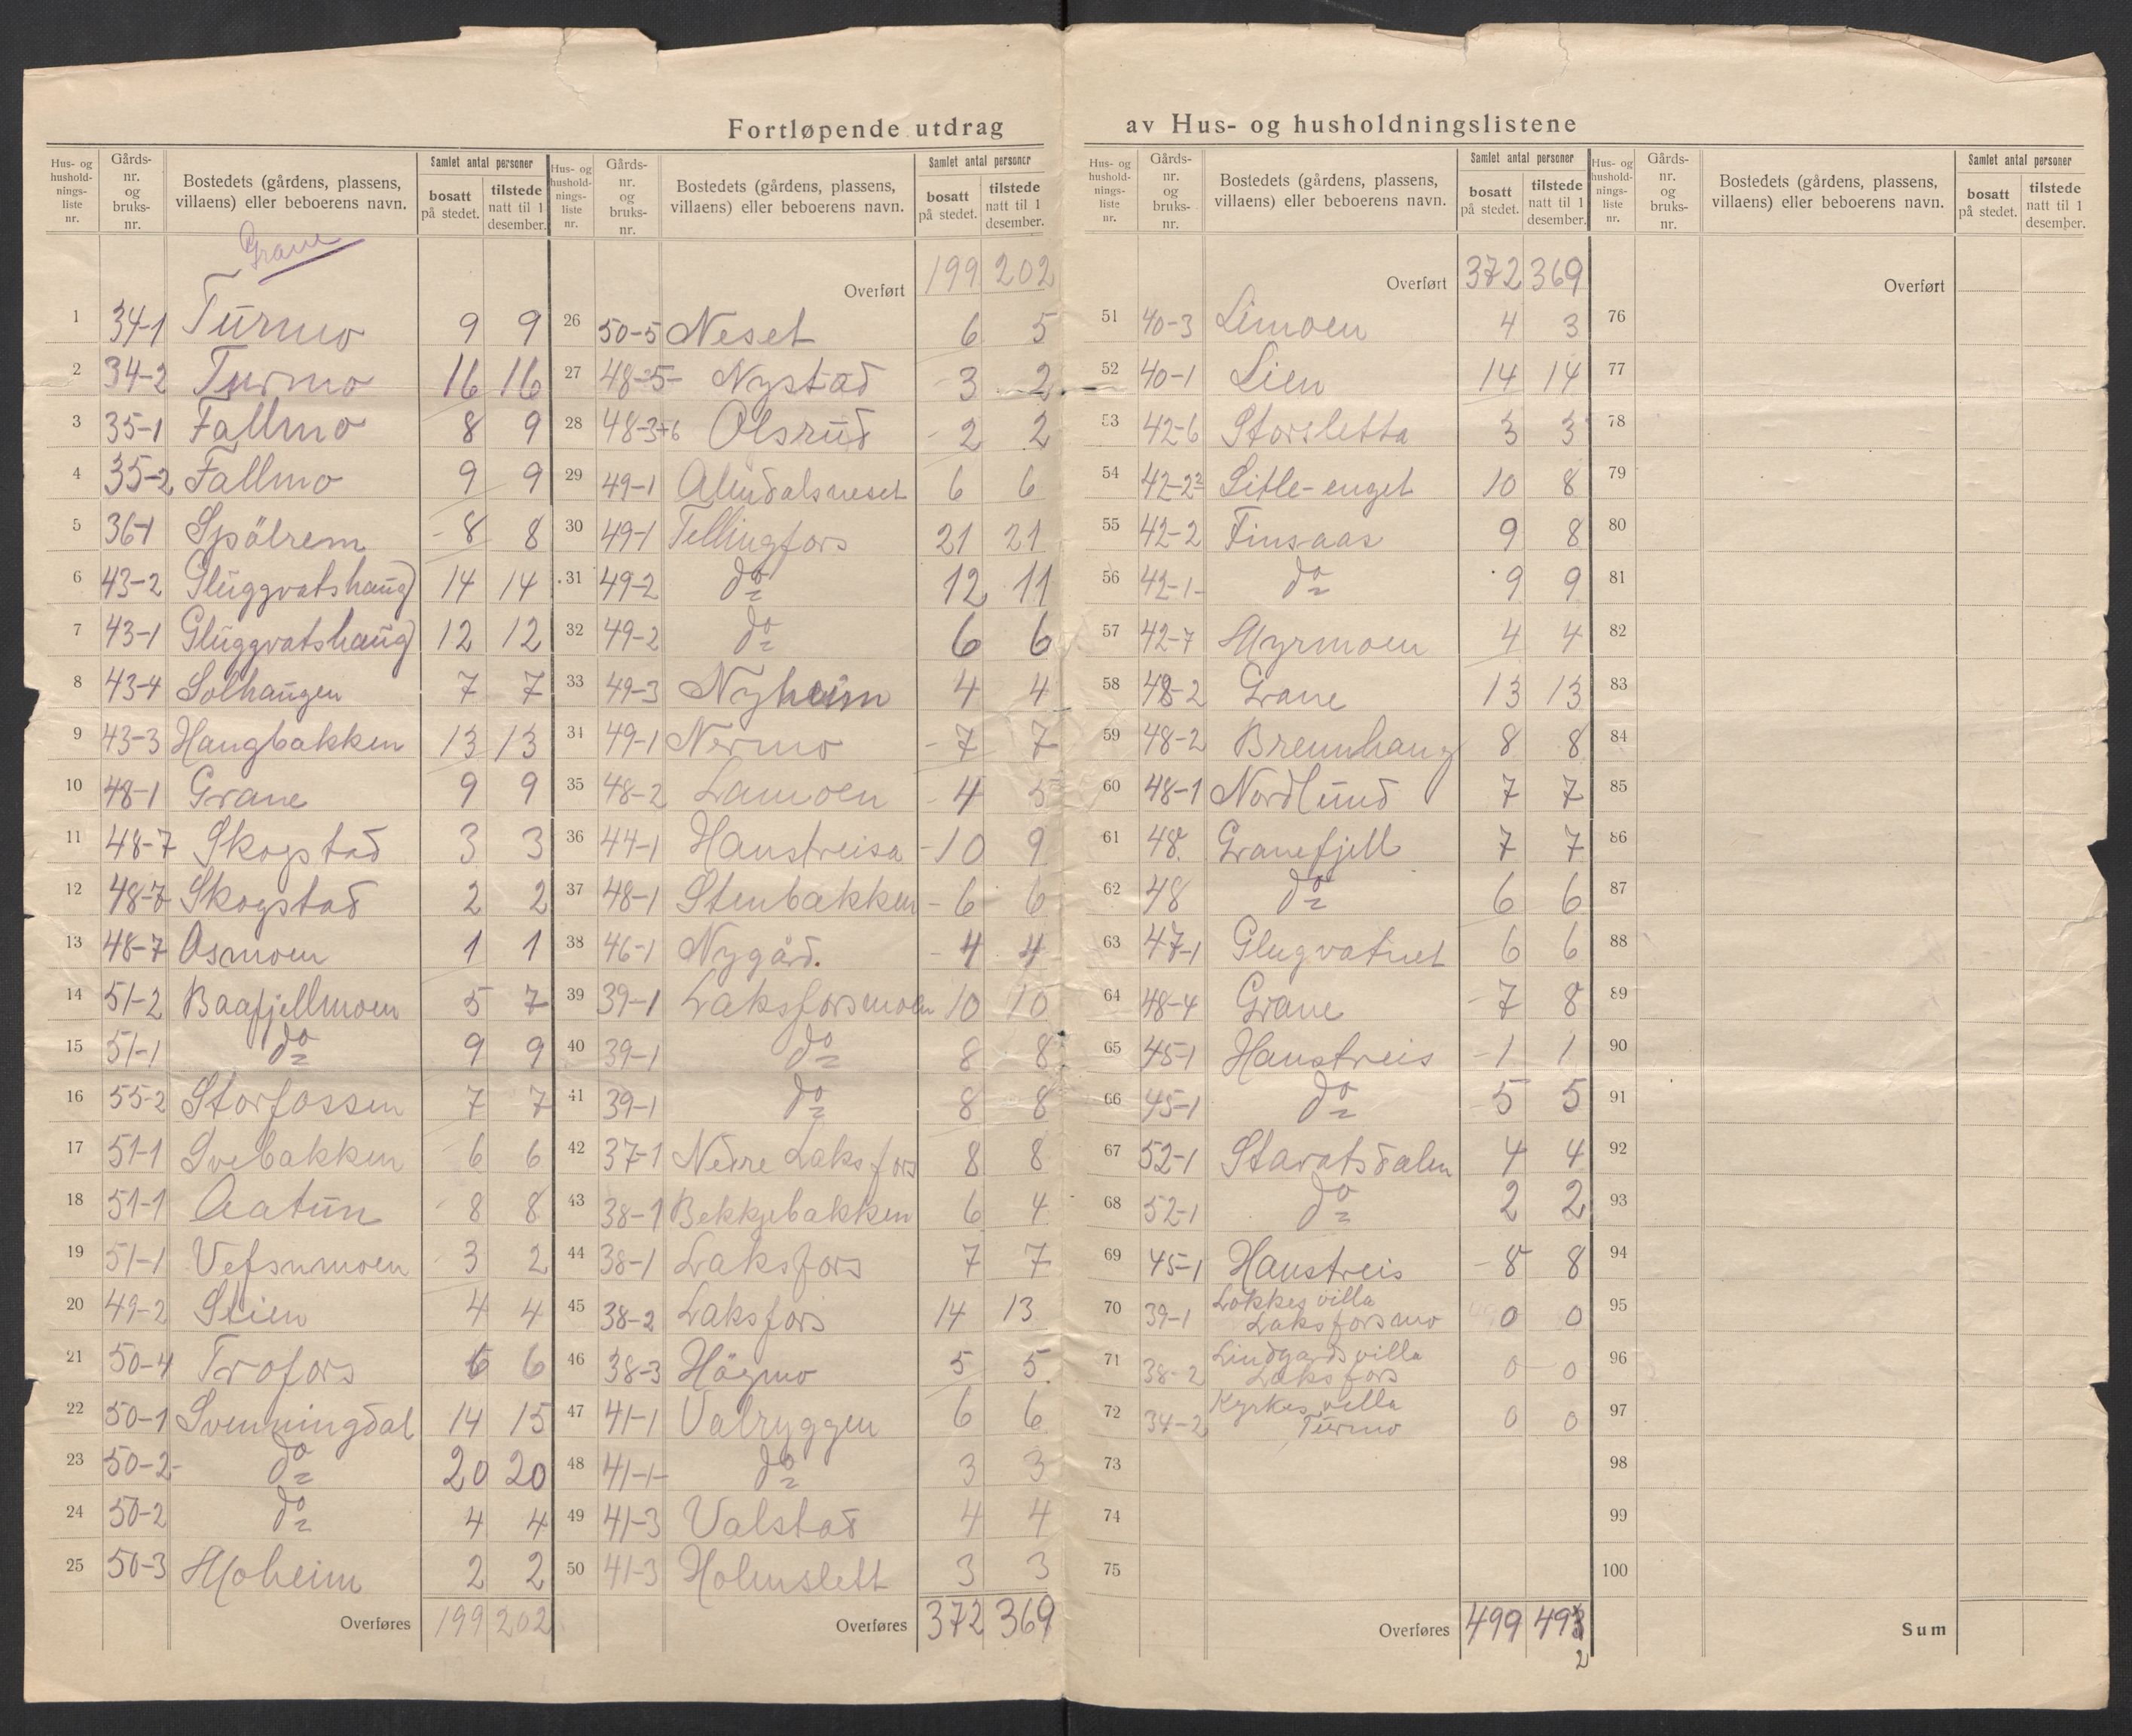 Fortløpende utdrag av Hus- og husholdningslistene
Hus- og husholdnings-liste nr. | Gårds-nr. og bruks-nr. | Bostedets (gårdens, plassens, villaens) eller beboerens navn. | Samlet antal personer | bosatt på stedet. | tilstede natt til 1 desember.
Grane
1 34-1 Turmo 9 9
2 34-2 Turmo 16 16
3 35-1 Fallmo 8 9
4 35-2 Fallmo 9 9
5 36-1 Spölrem 8 8
6 43-2 Gluggvatshaug 14 14
7 43-1 Gluggvatshaug 12 12
8 43-4 Solhaugen 7 7
9 43-3 Haugbakken 13 13
10 48-1 Grane 9 9
11 48-7 Skogstad 3 3
12 48-7 Skogstad 2 2
13 48-7 Osmoen 1 1
14 51-2 Baafjellmoen 5 7
15 51-1 do 9 9
16 55-2 Storfossen 7 7
17 51-1 Svebakken 6 6
18 51-1 Aatun 8 8
19 51-1 Vefsnmoen 3 2
20 49-2 Stien 4 4
21 50-4 Trofors 6 6
22 50-1 Svenningdal 14 15
23 50-2 do 20 20
24 50-2 do 4 4
25 50-3 Moheim 2 2
Overføres 199 202
Hus- og husholdnings-liste nr. | Gårds-nr. og bruks-nr. | Bostedets (gårdens, plassens, villaens) eller beboerens navn. | Samlet antal personer | bosatt på stedet. | tilstede natt til 1 desember.
Overført 199 202
26 50-5 Neset 6 5
27 48-5- Nystad 3 2
28 48-3+6 Olsrud 2 2
29 49-1 Almdalsneset 6 6
30 49-1 Fellingfors 21 21
31 49-2 do 12 11
32 49-2 do 6 6
33 49-3 Nyheim 4 4
34 49-1 Nermo 7 7
35 48-2 Lamoen 4 5
36 44-1 Haustreisa 10 9
37 48-1 Stenbakken 6 6
38 46-1 Nygård. 4 4
39 39-1 Laksforsmoen 10 10
40 39-1 do 8 8
41 39-1 do 8 8
42 37-1 Nedre Laksfors 8 8
43 38-1 Bekkjebakken 6 4
44 38-1 Laksfors 7 7
45 38-2 Laksfors 14 13
46 38-3 Högmo 5 5
47 41-1 Valryggen 6 6
48 41-1- do 3 3
49 41-3 Valstad 4 4
50 41-3 Holmslett 3 3
Overføres 372 369
Hus- og husholdnings-liste nr. | Gårds-nr. og bruks-nr. | Bostedets (gårdens, plassens, villaens) eller beboerens navn. | Samlet antal personer | bosatt på stedet. | tilstede natt til 1 desember.
Overført 372 369
51 40-3 Limoen 4 3
52 40-1 Lien 14 14
53 42-6 Storsletta 3 3
54 42-2² Litle-enget 10 8
55 42-2 Finsaas 9 8
56 42-1- do 9 9
57 42-7 Myrmoen 4 4
58 48-2 Grane 13 13
59 48-2 Brennhaug 8 8
60 48-1 Nordlund 7 7
61 48. Granefjell 7 7
62 48 do 6 6
63 47-1 Glugvatnet 6 6
64 48-4 Grane 7 8
65 45-1 Haustreis 1 1
66 45-1 do 5 5
67 52-1 Stavatsdalen 4 4
68 52-1 do 2 2
69 45-1 Haustreis 8 8
70 39-1 Lokkes villa
Laksforsmo 0 0
71 38-2 Lindgards villa
Laksfors 0 0
72 34-2 Kyrkes villa
Turmo 0 0
73
74
75
Overføres 499 493
2
Hus- og husholdnings-liste nr. | Gårds-nr. og bruks-nr. | Bostedets (gårdens, plassens, villaens) eller beboerens navn. | Samlet antal personer | bosatt på stedet. | tilstede natt til 1 desember.
Overført
76
77
78
79
80
81
82
83
84
85
86
87
88
89
90
91
92
93
94
95
96
97
98
99
100
Sum